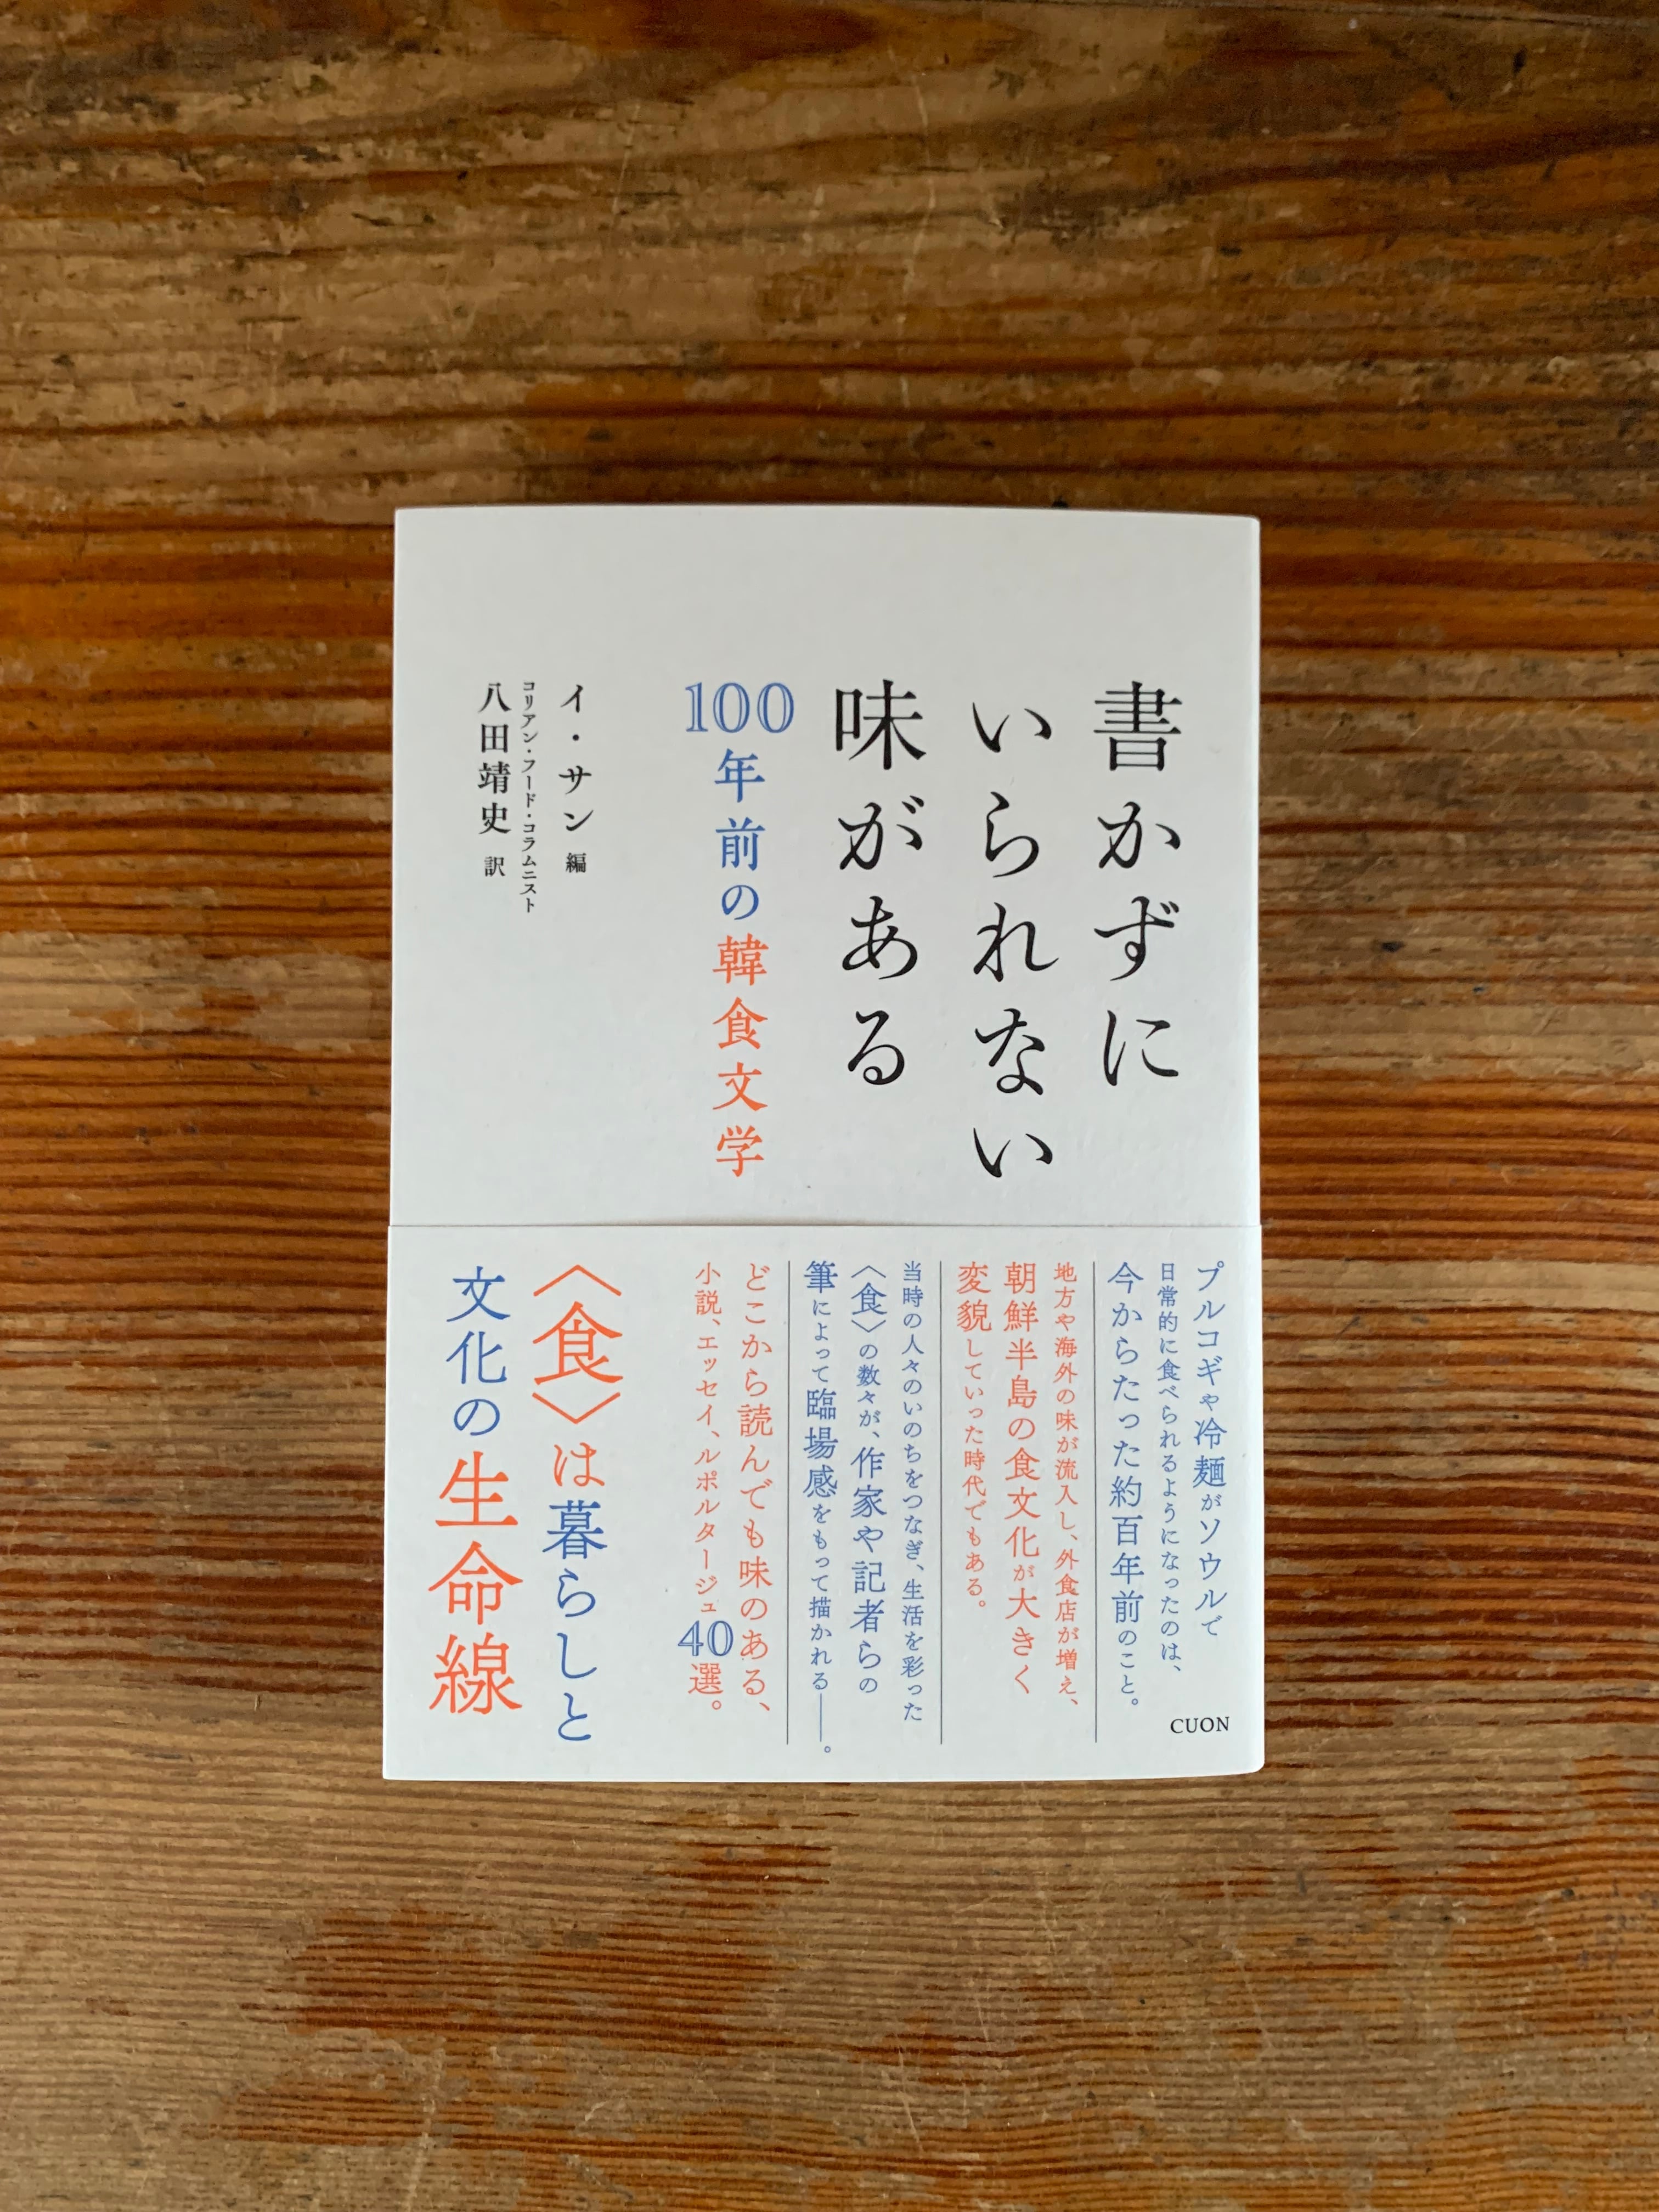 書かずに
いられない
味がある
100年前の韓食文学
イ・サン 編
コリアン・フード・コラムニスト
八田靖史 訳
プルコギや冷麺がソウルで
日常的に食べられるようになったのは、
今からたった約百年前のこと。
地方や海外の味が流入し、外食店が増え、
朝鮮半島の食文化が大きく
変貌していった時代でもある。
当時の人々のいのちをつなぎ、生活を彩った
〈食〉の数々が、作家や記者らの
筆によって臨場感をもって描かれる——。
どこから読んでも味のある、
小説、エッセイ、ルポルタージュ40選。
〈食〉は暮らしと
文化の生命線
CUON